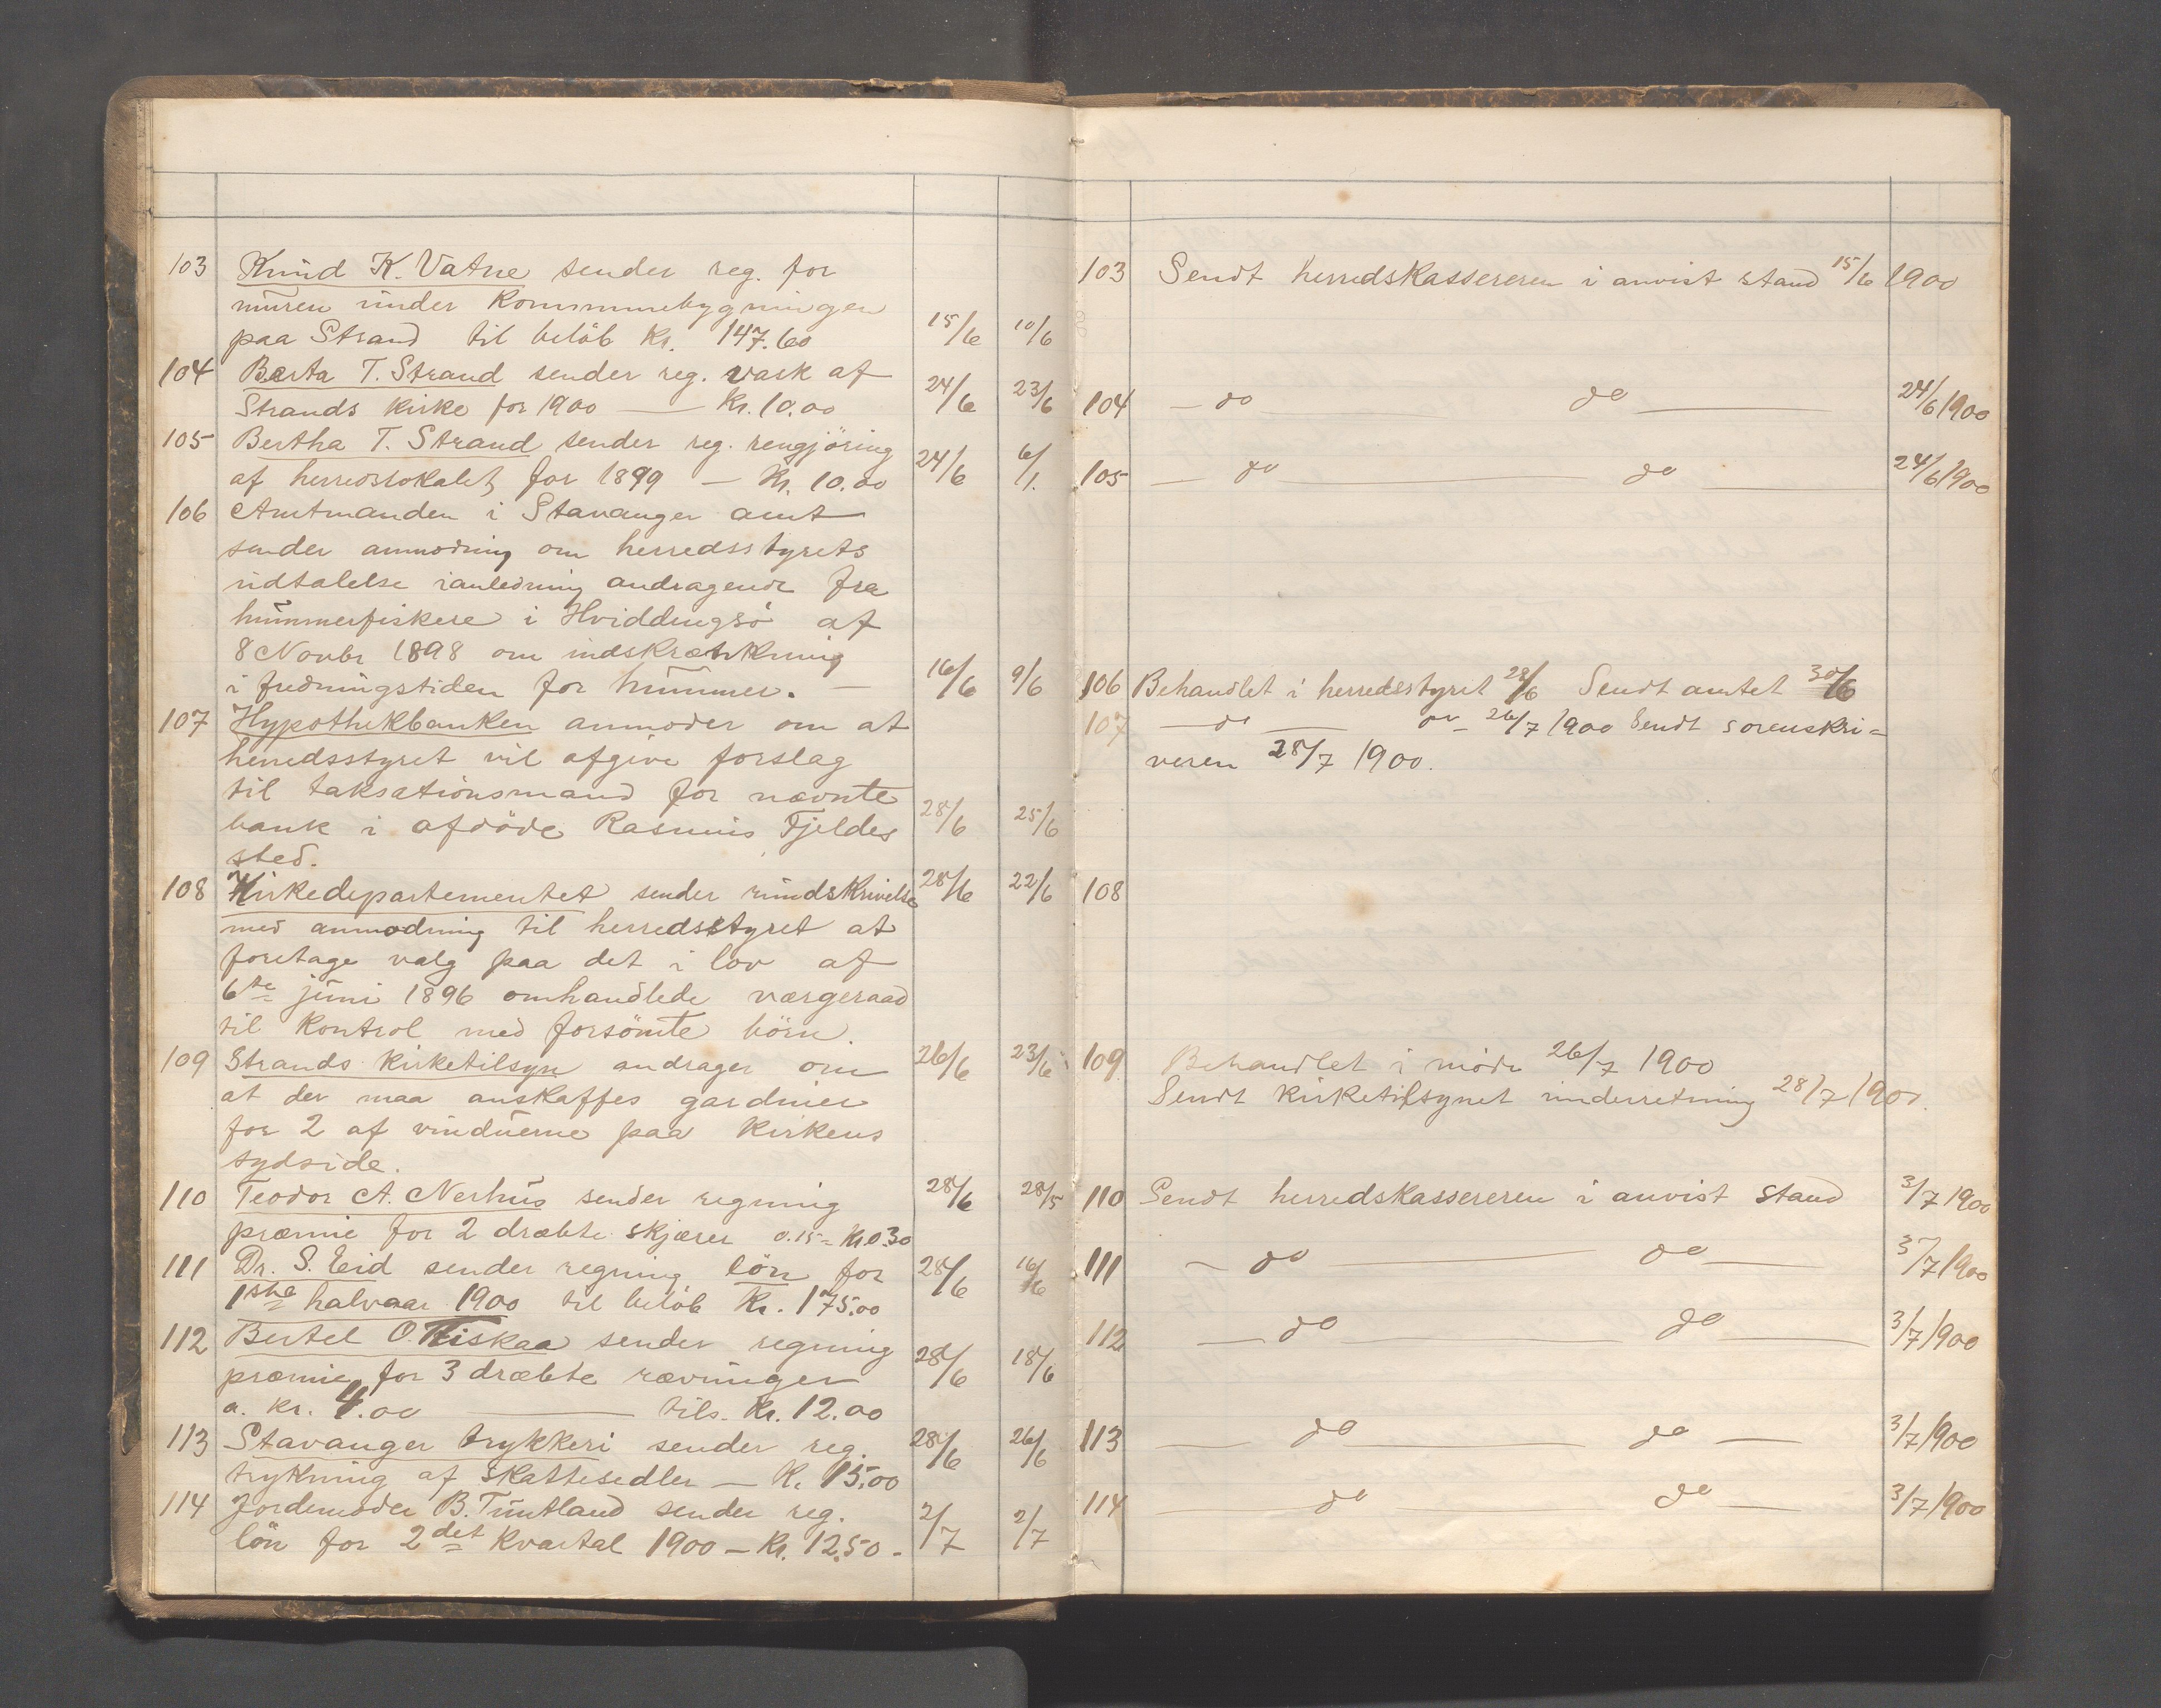 103 Knud K. Vatne sender reg. for
muren under kommunebygningen
paa Strand til belöb Kr. 147.60 15/6 10/6
104 Berta T. Strand sender reg. vask af
Strands kirke for 1900 — Kr. 10.00 24/6 23/6
105 Bertha T. Strand sender reg. rengjöring
af herredslokalet for 1899 — Kr. 10.00 24/6 6/1.
106 Amtmanden i Stavanger amt
sender anmodning om herredsstyrets
udtalelse ianledning andragende fra
hummerfiskere i Hviddingsö af
8 Novbr 1898 om indskrænkning
i fredningstiden for hummer. — 16/6 9/6
107 Hypothekbanken anmoder om at
herredsstyret vil afgive forslag
til taksationsmand for nævnte
bank i afdöde Rasmus Tjeldes 28/6 25/6
sted.
108 Kirkedepartementet sender rundskrivelse 28/6 22/6
med anmodning til herredsstyret at
foretage valg paa det i lov af
6te juni 1896 omhandlede værgeraad
til kontrol med forsömte börn.
109 Strands kirketilsyn andrager om 26/6 23/6
at der maa anskaffes gardiner
for 2 af vinduerne paa kirkens
sydside.
110 Teodor A. Nerhus sender regning 28/6 28/5
præmie for 2 dræbte skjærer 0.15 = Kr 0.30
111 Dr. S. Eid sender regning, lön for 28/6 16/6
1ste halvaar 1900 til belöb Kr. 175.00
112 Bertel O. Kiskaa sender regning
præmie for 3 dræbte rævunger 28/6 18/6
a. kr. 4.00 — tils. Kr. 12.00
113 Stavanger trykkeri sender reg. 28/6 26/6
trykning af skattesedler — K. 15.00
114 Jordemoder B. Tuntland sender reg.
lön for 2det kvartal 1900 — Kr. 12.50 - 2/7 2/7
103 Sendt herredskassereren i anvist stand 15/6 1900
104 — do — do — 24/6 1900
105 — do — do — 24/6 1900
106 Behandlet i herredsstyret 28/6 Sendt amtet 30/6
107 — do — 26/7 1900 Sendt sorenskri=
veren 28/7 1900.
108
109 Behandlet i möde 26/7 1900
Sendt kirketilsynet underretning 28/7 1900.
110 Sendt herredskassereren i anvist stand 3/7 1900
111 — do — do — 3/7 1900
112 — do — do — 3/7 1900
113 — do — do — 3/7 1900
114 — do — do — 3/7 1900